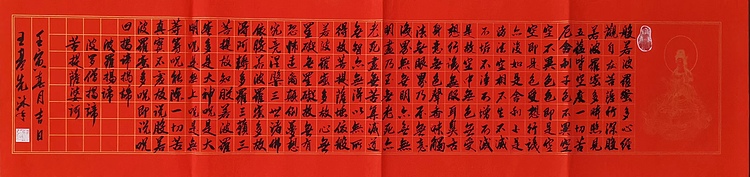 般若波羅蜜多心經
觀自在菩薩行深般
若波羅蜜多時照見
五蘊皆空度一切苦
厄舍利子色不異空
空不異色色即是空
空即是色受想行識
亦復如是舍利子是
諸法空相不生不滅
不垢不淨不增不減
是故空中無色無受
想行識無眼耳鼻舌
身意無色聲香味觸
法無眼界乃至無意
識界無無明亦無無
明盡乃至無老死亦無
老死盡無苦集滅道
無智亦無得以無所
得故菩提薩埵依般
若波羅蜜多故心無
罣礙無罣礙故無有
恐怖遠離顛倒夢想
究竟涅槃三世諸佛
依般若波羅蜜多故
得阿耨多羅三藐三
菩提故知般若波羅
蜜多是大神咒是大
明咒是無上咒是無
等等咒能除一切苦
真實不虛故說般若
波羅蜜多咒即說咒
曰揭諦揭諦
波羅揭諦
波羅僧揭諦
菩提薩婆訶
壬寅春月吉日